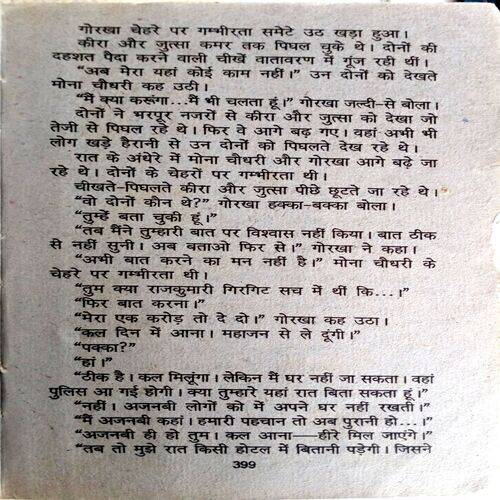 गोरखा चेहरे पर गम्भीरता समेटे उठ खड़ा हुआ।
कीरा और जुत्सा कमर तक पिघल चुके थे। दोनों की
दहशत पैदा करने वाली चीखें वातावरण में गूंज रही थीं।
“अब मेरा यहां कोई काम नहीं।” उन दोनों को देखते
मोना चौधरी कह उठी।
“मैं क्या करूंगा...मैं भी चलता हूं।” गोरखा जल्दी-से बोला।
दोनों ने भरपूर नजरों से कीरा और जुत्सा को देखा जो
तेजी से पिघल रहे थे। फिर वे आगे बढ़ गए। वहां अभी भी
लोग खड़े हैरानी से उन दोनों को पिघलते देख रहे थे।
रात के अंधेरे में मोना चौधरी और गोरखा आगे बढ़े जा
रहे थे। दोनों के चेहरों पर गम्भीरता थी।
चीखते-पिघलते कीरा और जुत्सा पीछे छूटते जा रहे थे।
“वो दोनों कौन थे?” गोरखा हक्का-बक्का बोला।
“तुम्हें बता चुकी हूं।”
“तब मैंने तुम्हारी बात पर विश्वास नहीं किया। बात ठीक
से नहीं सुनी। अब बताओ फिर से।” गोरखा ने कहा।
“अभी बात करने का मन नहीं है।” मोना चौधरी के
चेहरे पर गम्भीरता थी।
“तुम क्या राजकुमारी गिरगिट सच में थीं कि...।”
“फिर बात करना।”
“मेरा एक करोड़ तो दे दो।” गोरखा कह उठा।
“कल दिन में आना। महाजन से ले दूंगी।”
“पक्का?”
“हां।”
“ठीक है। कल मिलूंगा। लेकिन मैं घर नहीं जा सकता। वहां
पुलिस आ गई होगी। क्या तुम्हारे यहां रात बिता सकता हूं।”
“नहीं। अजनबी लोगों को मैं अपने घर नहीं रखती।”
“मैं अजनबी कहां। हमारी पहचान तो अब पुरानी हो...।”
“अजनबी ही हो तुम। कल आना—हीरे मिल जाएंगे।”
“तब तो मुझे रात किसी होटल में बितानी पड़ेगी। जिसने
399